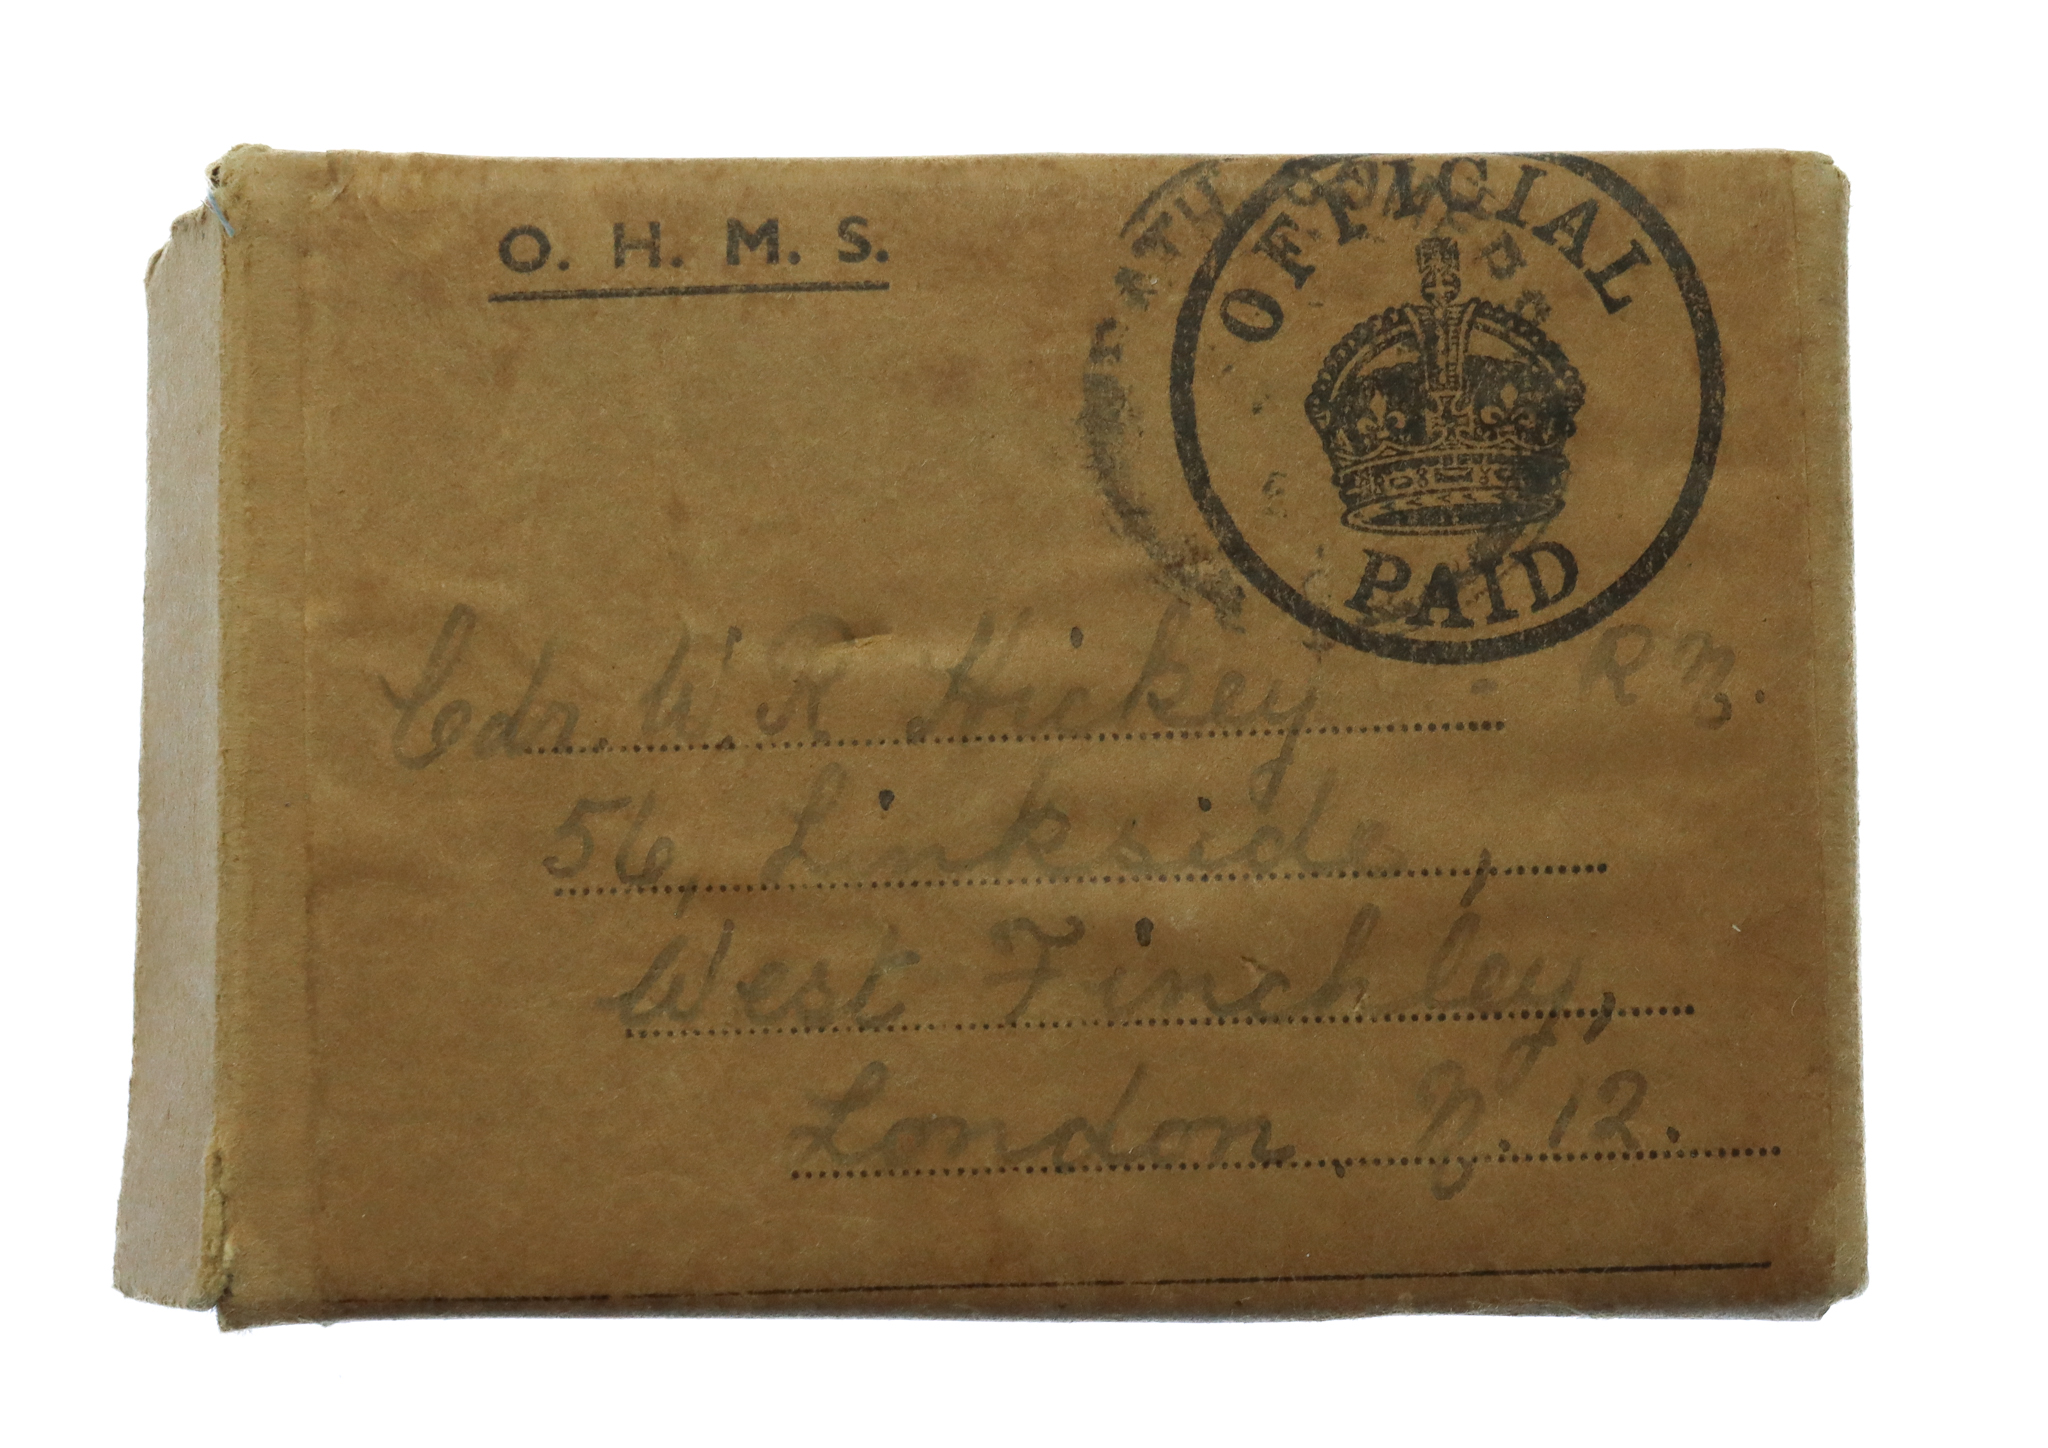 O. H. M. S.
OFFICIAL
PAID
BATH SOMERSET
Cdr. W. R. Hickey - R N.
56, Linkside,
West Finchley,
London N. 12.